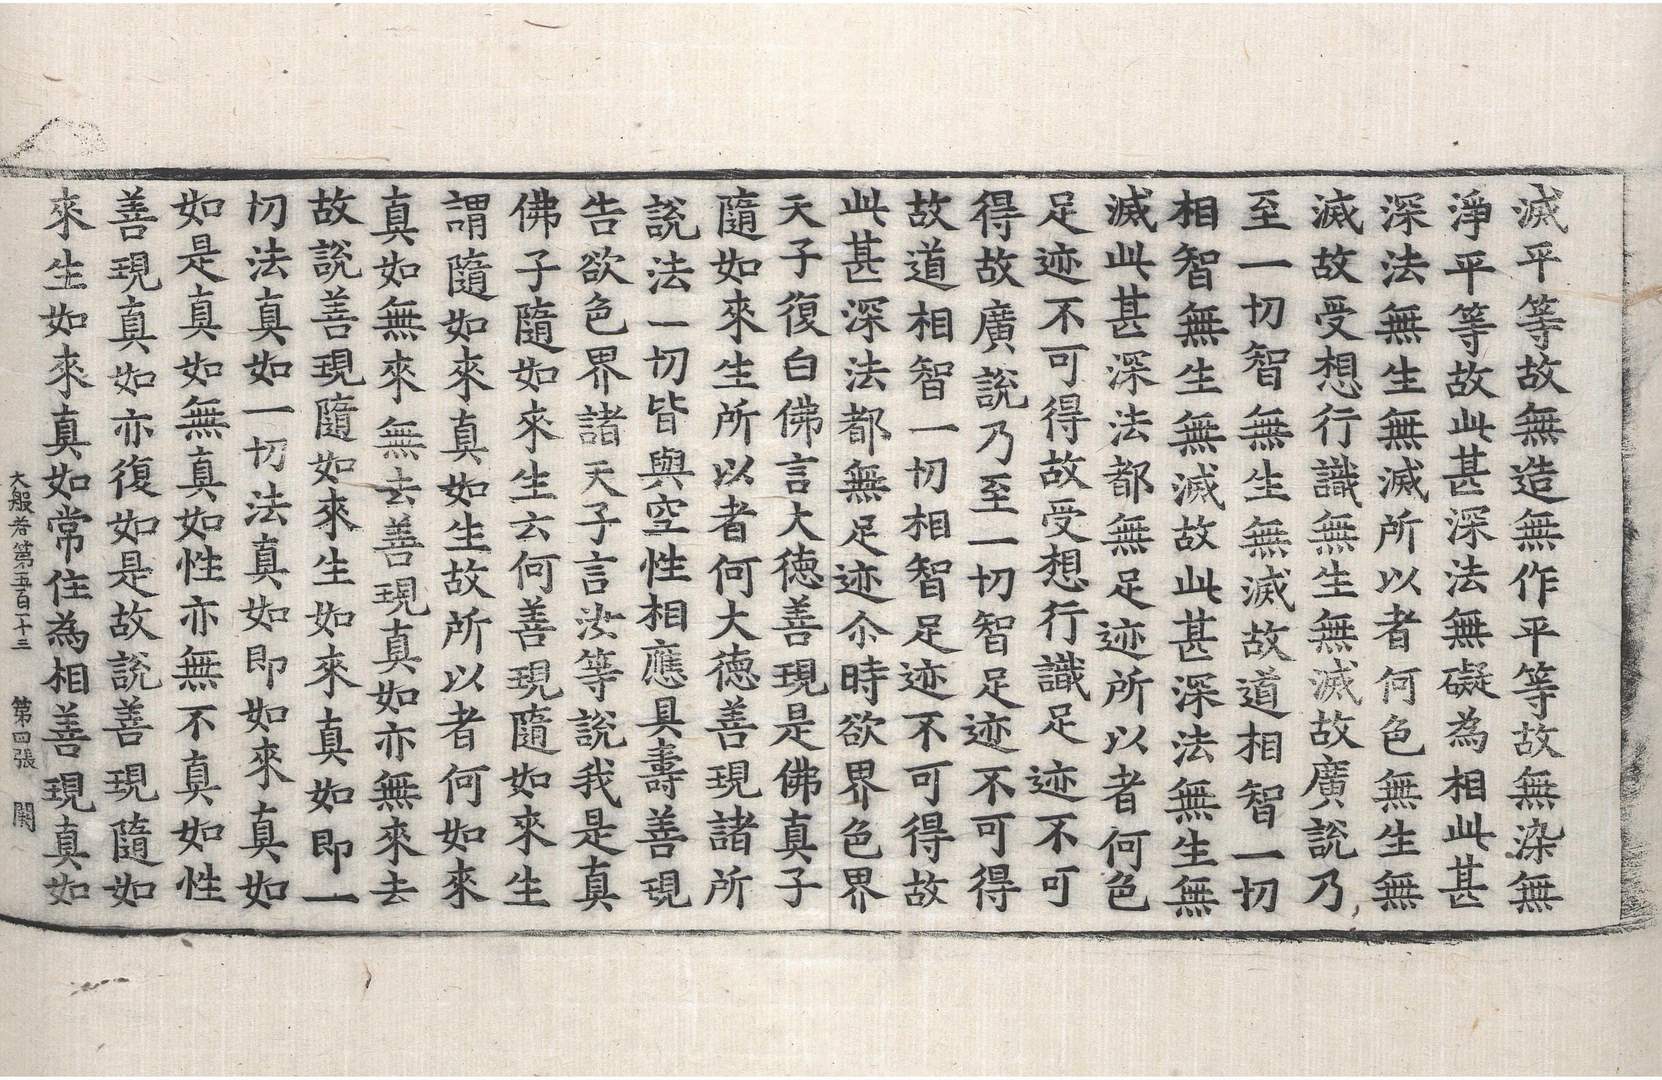 滅平等故無造無作平等故無染無
淨平等故此甚深法無礙為相此甚
深法無生無滅所以者何色無生無
滅故受想行識無生無滅故廣說乃
至一切智無生無滅故道相智一切
相智無生無滅故此甚深法無生無
滅此甚深法都無足迹所以者何色
足迹不可得故受想行識足迹不可
得故廣說乃至一切智足迹不可得
故道相智一切相智足迹不可得故
此甚深法都無足迹尒時欲界色界
天子復白佛言大德善現是佛真子
隨如來生所以者何大德善現諸所
說法一切皆與空性相應具壽善現
告欲色界諸天子言汝等說我是真
佛子隨如來生云何善現隨如來生
謂隨如來真如生故所以者何如來
真如無來無去善現真如亦無來去
故說善現隨如來生如來真如即一
切法真如一切法真如即如來真如
如是真如無真如性亦無不真如性
善現真如亦復如是故說善現隨如
來生如來真如常住為相善現真如
大般若第五百一十三 第四張 闕